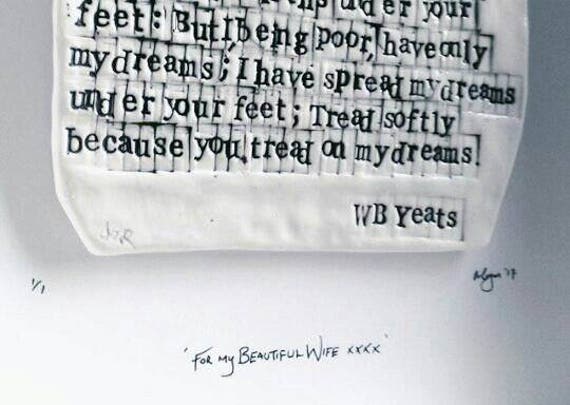 under your
feet: But I, being poor, have only
my dreams; I have spread my dreams
under your feet; Tread softly
because you tread on my dreams.
WB Yeats
1/1
'17
'FOR MY BEAUTIFUL WIFE xxxx'